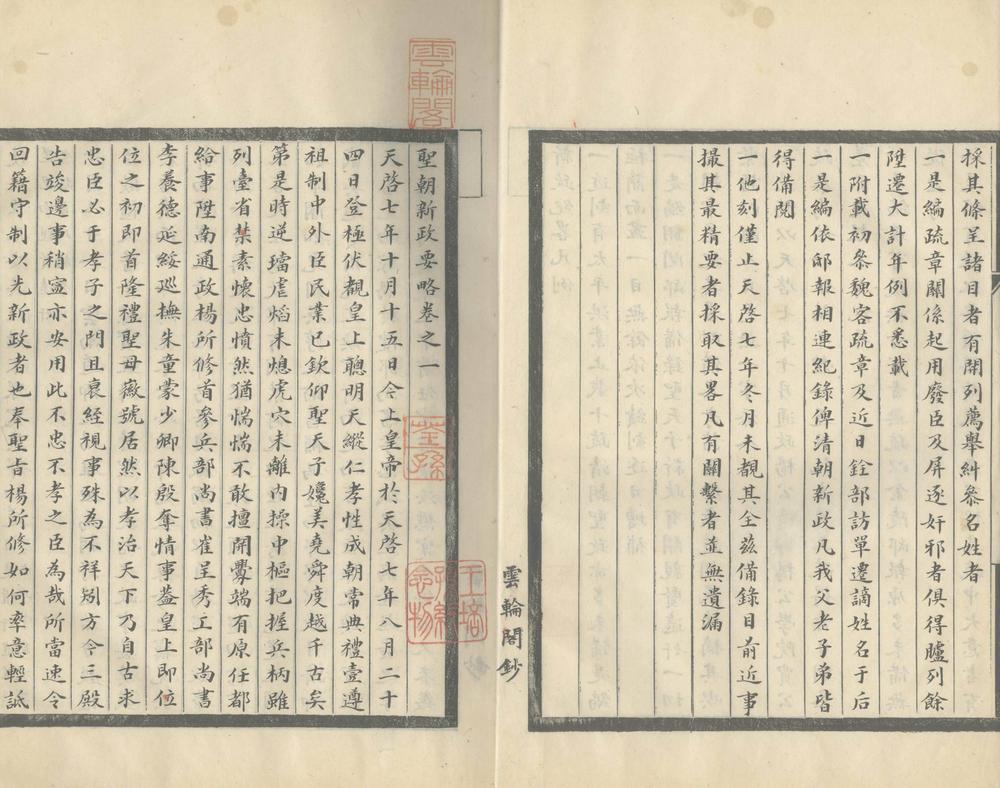 採其條呈諸目者有開列薦舉糾叅名姓者
一是編疏章關係起用廢臣及屏逐奸邪者俱得臚列餘
陞遷大計年例不悉載
一附載初叅魏客疏章及近日銓部訪單遷謫姓名于后
一是編依邸報相連紀錄俾清朝新政凡我父老子弟皆
得備閱
一他刻僅止天啓七年冬月未覩其全兹備錄目前近事
撮其最精要者採取其畧凡有關繫者並無遺漏
雲輪閣鈔
雲輪閣
荃孫
聖朝新政要略卷之一
天啓七年十月十五日今上皇帝於天啓七年八月二十
四日登極伏覩皇上聰明天縱仁孝性成朝常典禮壹遵
祖制中外臣民業已欽仰聖天子媲美堯舜度越千古矣
第是時逆璫虐熖未熄虎穴未離内操中樞把握兵柄雖
列臺省禁素懷忠憤然猶惴惴不敢擅開釁端有原任都
給事陞南通政楊所修首參兵部尚書崔呈秀工部尚書
李養德延綏巡撫朱童蒙少卿陳殷奪情事葢皇上即位
位之初即首隆禮聖母徽號居然以孝治天下乃自古求
忠臣必于孝子之門且衰絰視事殊為不祥矧方今三殿
告竣邊事稍寍亦安用此不忠不孝之臣為哉所當速令
回籍守制以光新政者也奉聖旨楊所修如何率意輕詆